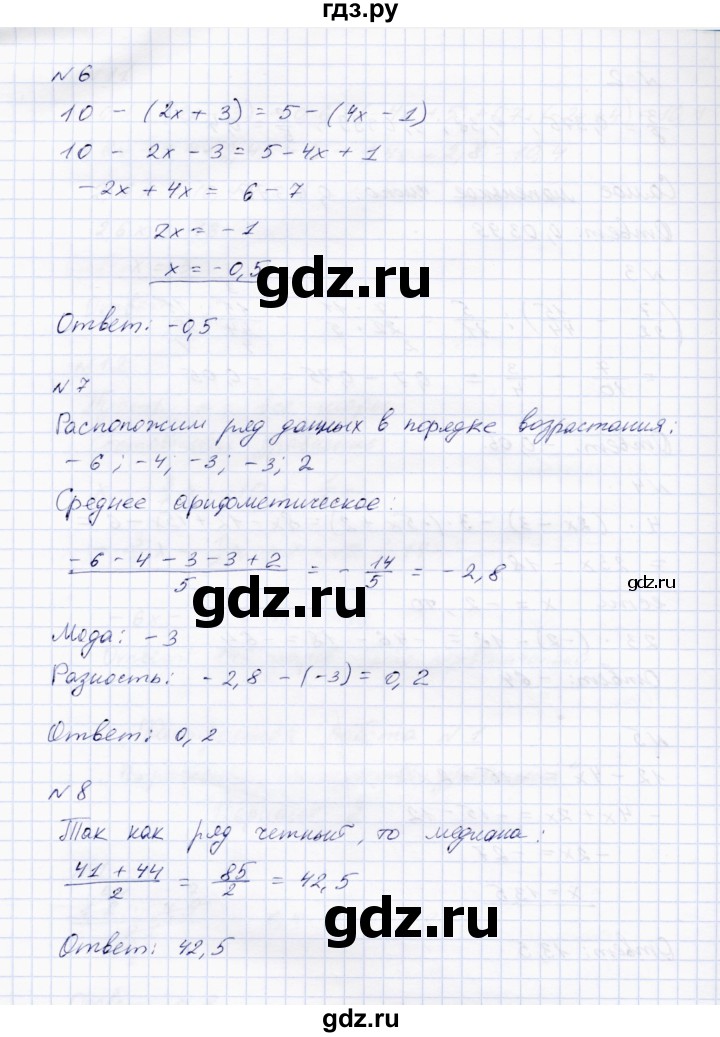 гдз.ру
№ 6
10 - (2x + 3) = 5 - (4x - 1)
10 - 2x - 3 = 5 - 4x + 1
-2x + 4x = 6 - 7
2x = -1
x = -0,5
gdz.ru
Ответ: -0,5
№ 7
Расположим ряд данных в порядке возрастания:
-6; -4; -3; -3; 2
Среднее арифметическое:
(-6 - 4 - 3 - 3 + 2)/5 = - 14/5 = -2,8
gdz.ru
gdz.ru
Мода: -3
Разность: -2,8 - (-3) = 0,2
Ответ: 0,2
№ 8
Так как ряд четный, то медиана:
(41 + 44)/2 = 85/2 = 42,5
gdz.ru
Ответ: 42,5
gdz.ru